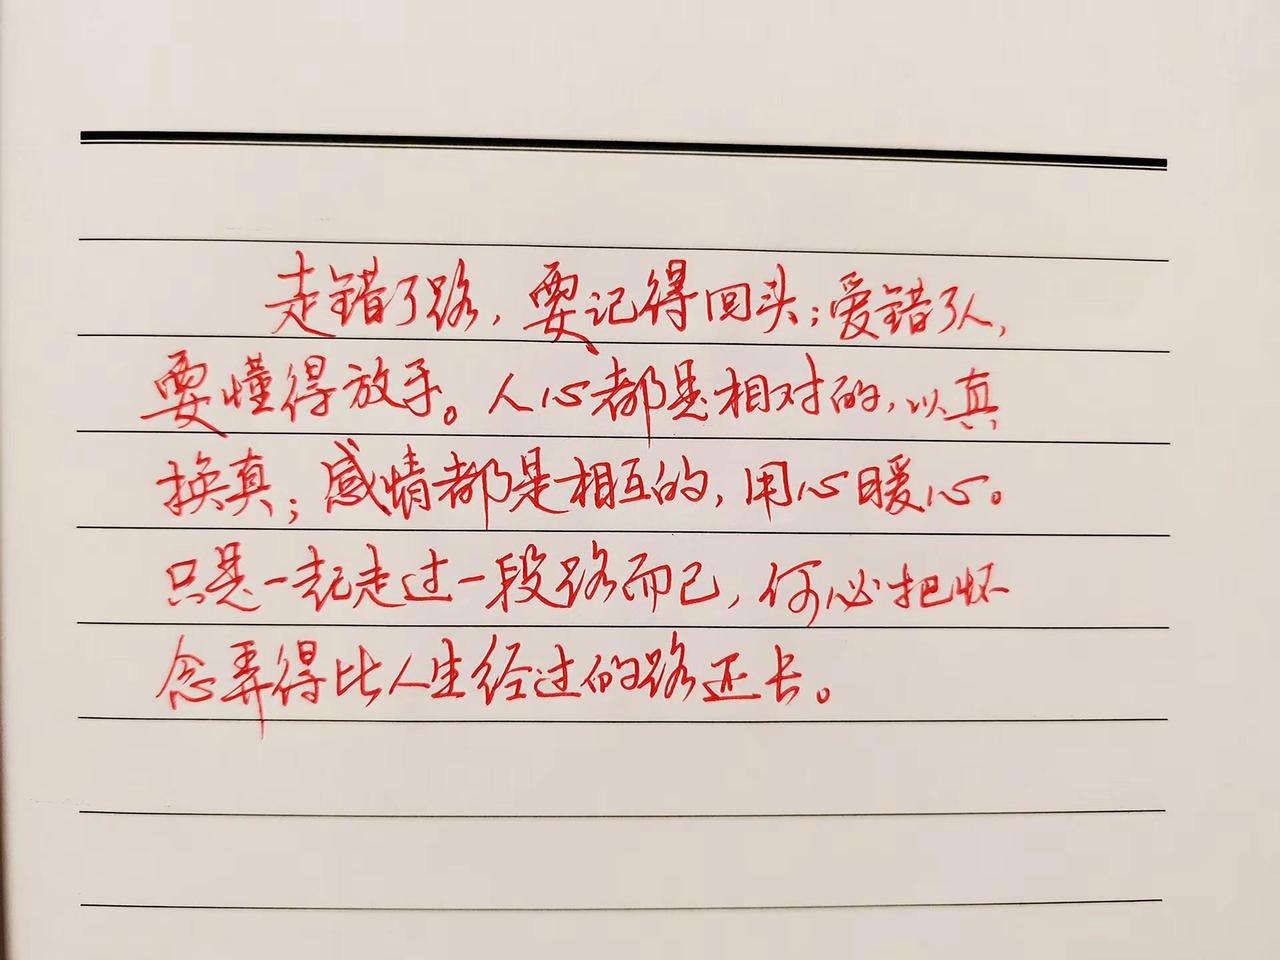 走错了路，要记得回头；爱错了人，
要懂得放手。人心都是相对的，以真
换真；感情都是相互的，用心暖心。
只是一起走过一段路而已，何必把怀
念弄得比人生经过的路还长。